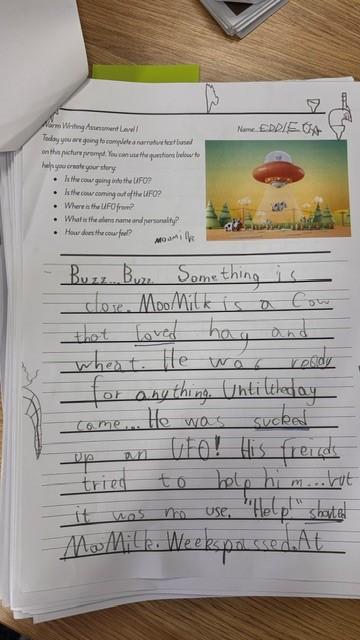 Warm Writing Assessment Level 1
Name EDDIE
Today you are going to complete a narrative text based
on this picture prompt. You can use the questions below to
help you create your story:
• Is the cow going into the UFO?
• Is the cow coming out of the UFO?
• Where is the UFO from?
• What is the aliens name and personality?
• How does the cow feel?
MooMilk
Buzz...Buzz Something is
close. MooMilk is a Cow
that loved hay and
wheat. He was ready
for anything. Until the day
came... He was sucked
up an UFO! His freids
tried to help him...but
it was no use. "Help!" shouted
MooMilk. Weeks passed. At